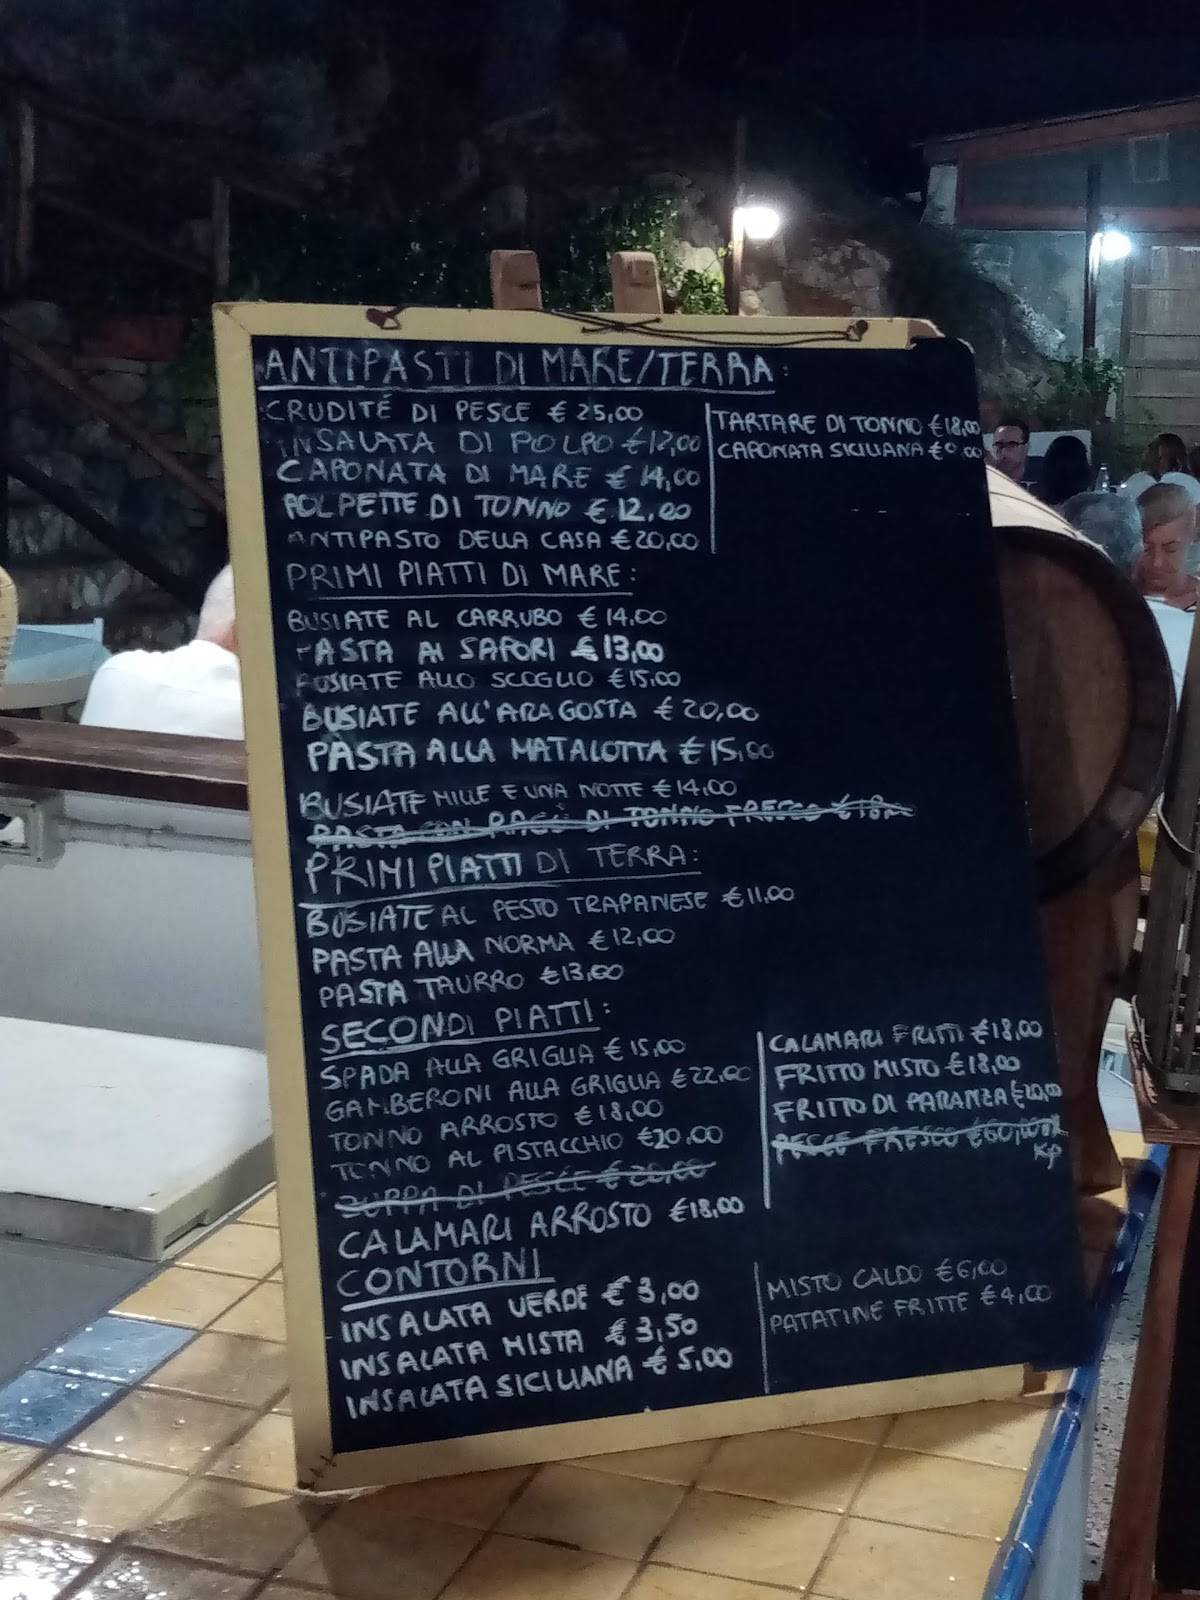 ANTIPASTI DI MARE/TERRA:
CRUDITÉ DI PESCE € 25,00
INSALATA DI POLPO €12,00
CAPONATA DI MARE € 14,00
POLPETTE DI TONNO € 12,00
ANTIPASTO DELLA CASA € 20,00
TARTARE DI TONNO €18,00
CAPONATA SICILIANA €
PRIMI PIATTI DI MARE:
BUSIATE AL CARRUBO € 14,00
PASTA AI SAPORI € 13,00
BUSIATE ALLO SCOGLIO €15,00
BUSIATE ALL'ARAGOSTA € 20,00
PASTA ALLA MATALOTTA €15,00
BUSIATE MILLE E UNA NOTTE €14,00
PASTA CON RAGÙ DI TONNO FRESCO €18,00
PRIMI PIATTI DI TERRA:
BUSIATE AL PESTO TRAPANESE €11,00
PASTA ALLA NORMA €12,00
PASTA TAURRO €13,00
SECONDI PIATTI:
SPADA ALLA GRIGLIA € 15,00
GAMBERONI ALLA GRIGLIA €22,00
TONNO ARROSTO €18,00
TONNO AL PISTACCHIO €20,00
ZUPPA DI PESCE € 20,00
CALAMARI ARROSTO €18,00
CALAMARI FRITTI €18,00
FRITTO MISTO €18,00
FRITTO DI PARANZA €20,00
PESCE FRESCO €60,00
Kp
CONTORNI
INSALATA VERDE € 3,00
INSALATA MISTA € 3,50
INSALATA SICILIANA € 5,00
MISTO CALDO €6,00
PATATINE FRITTE €4,00